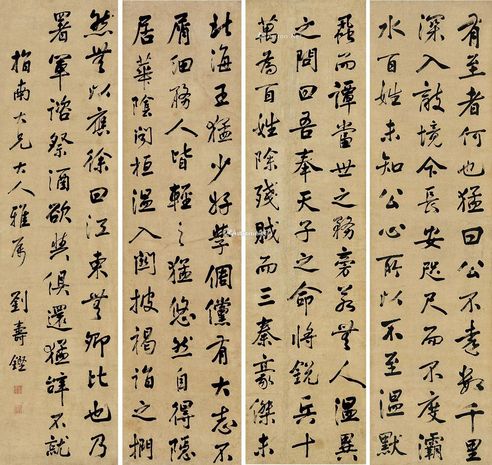 有至者何也猛曰公不遠數千里
深入敵境今長安咫尺而不度灞
水百姓未知公心所以不至溫默
蝨而譚當世之務旁若無人溫異
之問曰吾奉天子之命將銳兵十
萬為百姓除殘賊而三秦豪傑未
北海王猛少好學倜儻有大志不
屑細務人皆輕之猛悠然自得隱
居華陰聞桓溫入關披褐詣之捫
然無以應徐曰江東無卿比也乃
署軍諮祭酒欲與俱還猛辭不就
指南大兄大人雅屬 劉壽